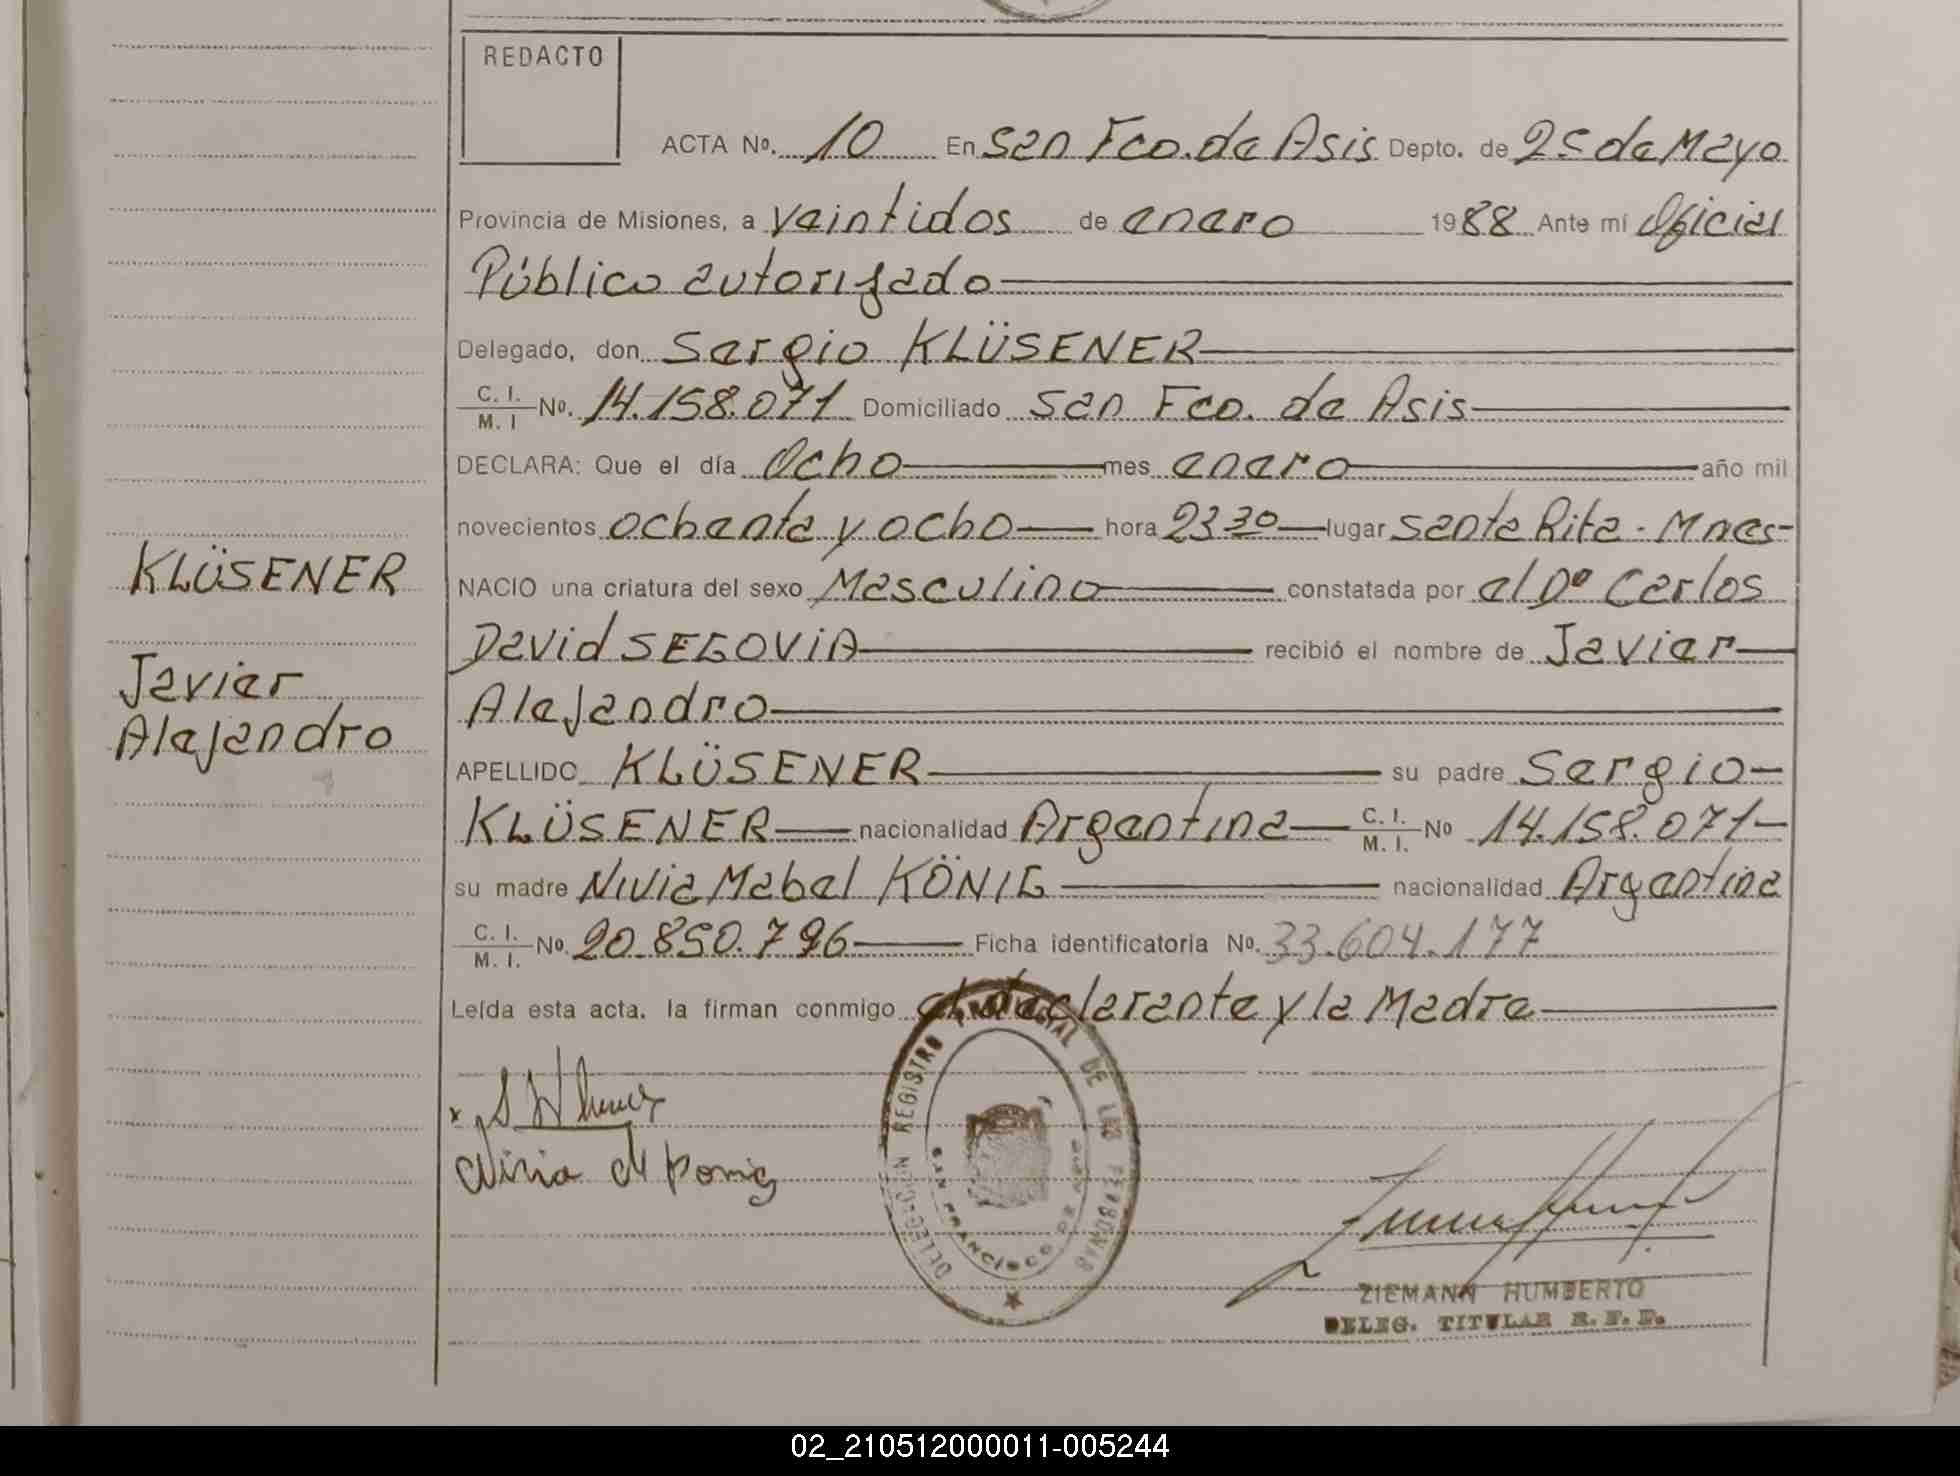 REDACTO
ACTA Nº. 10 En San Fco. de Asis Depto. de 25 de Mayo
Provincia de Misiones, a veintidos de enero 1988 Ante mí Oficial
Público autorizado
Delegado, don Sergio KLÜSENER
C. I.
M. I Nº. 14.158.071 Domiciliado San Fco. de Asis
DECLARA: Que el día Ocho mes enero año mil
novecientos ochenta y ocho hora 23 30 lugar Santa Rita - Mnes-
NACIO una criatura del sexo Masculino constatada por el Dº Carlos
David SEGOVIA recibió el nombre de Javier
Alejandro
APELLIDO KLÜSENER su padre Sergio
KLÜSENER nacionalidad Argentina C. I.
M. I. Nº 14.158.071
su madre Nivia Mabel KÖNIG nacionalidad Argentina
C. I.
M. I. Nº. 20.850.796 Ficha identificatoria Nº. 33.604.177
Leída esta acta. la firman conmigo el declarante y la Madre
KLÜSENER
Javier
Alejandro
DELEGACIÓN REGISTRO PROVINCIAL DE LAS PERSONAS
SAN FRANCISCO DE ASIS
ZIEMANN HUMBERTO
DELEG. TITULAR R. P. P.
02_210512000011-005244